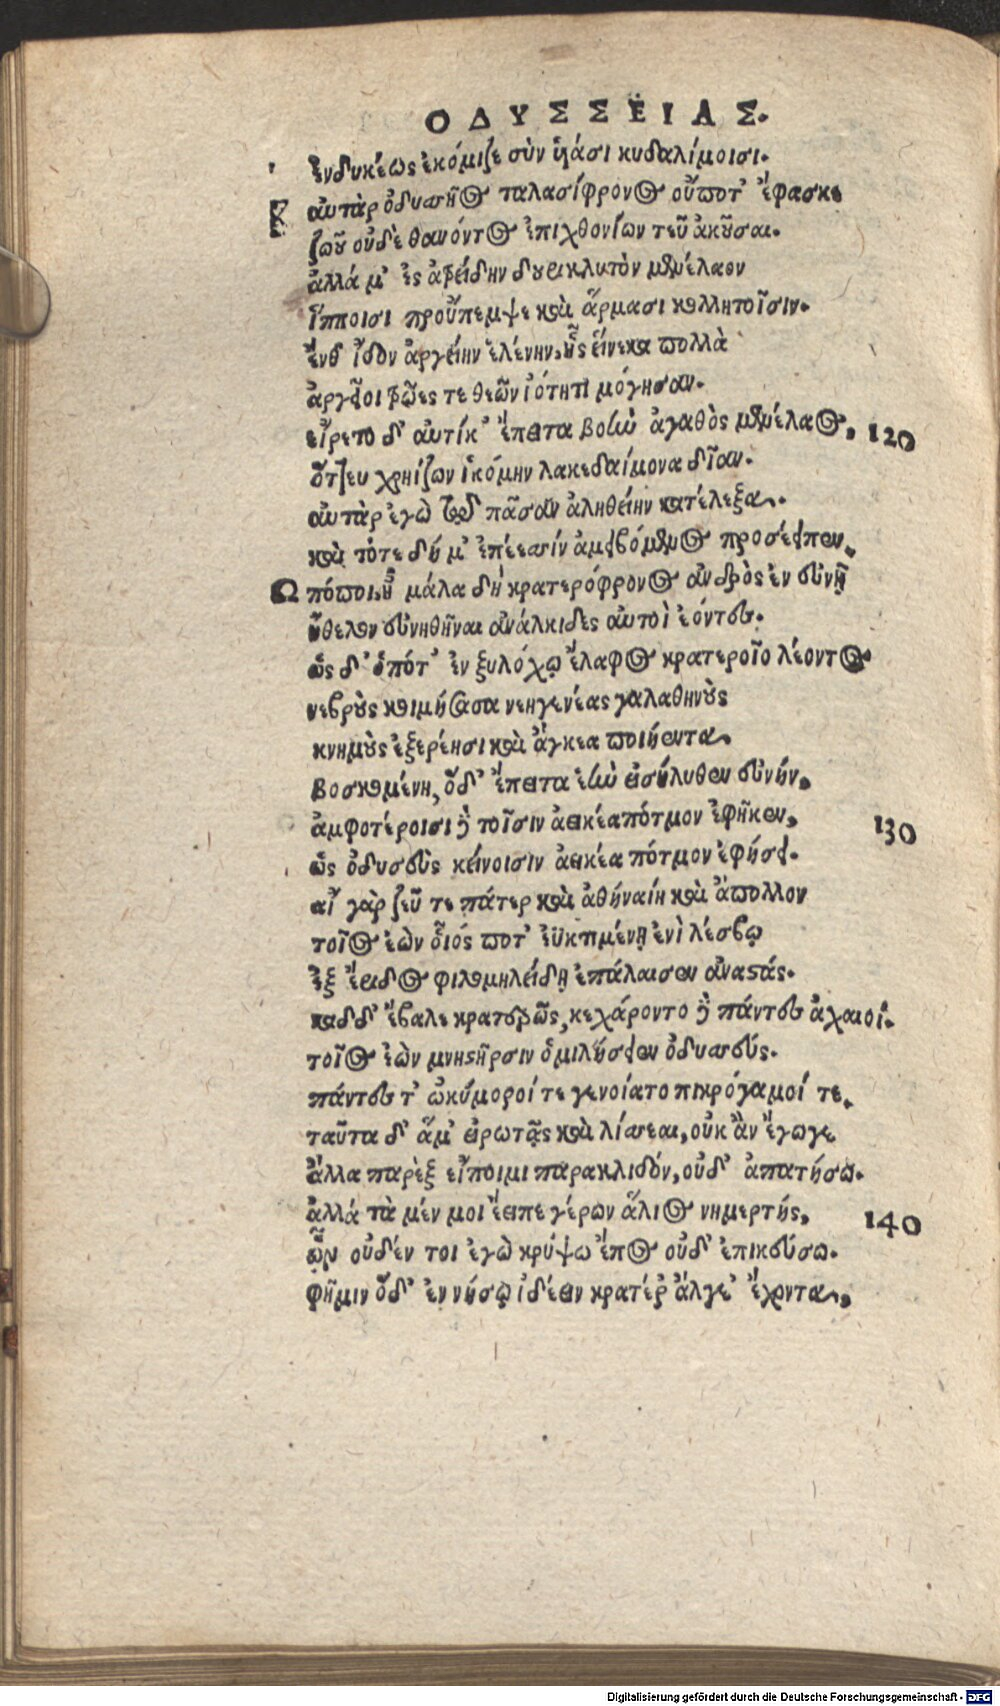 ΟΔΥΣΣΕΙΑΣ.
ἐνδυκέως ἐκόμιζε σὺν υἱάσι κυδαλίμοισι.
αὐτὰρ ὀδυσσῆος ταλασίφρονος οὔποτ' ἔφασκε
ζωοῦ οὐδὲ θανόντος ἐπιχθονίων τεῦ ἀκοῦσαι.
ἀλλά μ' ἐς ἀτρείδην δουρικλυτὸν μενέλαον
ἵπποισι προὔπεμψε καὶ ἅρμασι κολλητοῖσιν.
ἔνθ' ἴδον ἀργείην ἑλένην, ἧς εἵνεκα πολλὰ
ἀργεῖοι τρῶες τε θεῶν ἰότητι μόγησαν.
εἴρετο δ' αὐτίκ' ἔπειτα βοὴν ἀγαθὸς μενέλαος, 120
ὅττευ χρηίζων ἱκόμην λακεδαίμονα δῖαν.
αὐτὰρ ἐγὼ τῷ πᾶσαν ἀληθείην κατέλεξα.
καὶ τότε δή μ' ἐπέεσσιν ἀμειβόμενος προσέειπεν.
Ω πόποι, ἦ μάλα δὴ κρατερόφρονος ἀνδρὸς ἐν εὐνῇ
ἤθελον εὐνηθῆναι ἀνάλκιδες αὐτοὶ ἐόντες.
ὡς δ' ὁπότ' ἐν ξυλόχῳ ἔλαφος κρατεροῖο λέοντος
νεβροὺς κοιμήσασα νεηγενέας γαλαθηνοὺς
κνημοὺς ἐξερέησι καὶ ἄγκεα ποιήεντα.
βοσκομένη, ὅδ' ἔπειτα ἑὴν εἰσήλυθεν εὐνήν,
ἀμφοτέροισι δὲ τοῖσιν ἀεικέα πότμον ἐφῆκεν, 130
ὣς ὀδυσεὺς κείνοισιν ἀεικέα πότμον ἐφήσει.
αἲ γὰρ ζεῦ τε πάτερ καὶ ἀθηναίη καὶ ἄπολλον
τοῖος ἐὼν οἷός ποτ' ἐϋκτιμένῃ ἐνὶ λέσβῳ
ἐξ ἔριδος φιλομηλείδῃ ἐπάλαισεν ἀναστάς.
καδδ' ἔβαλε κρατερῶς, κεχάροντο δὲ πάντες ἀχαιοί.
τοῖος ἐὼν μνηστῆρσιν ὁμιλήσειεν ὀδυσσεύς.
πάντες τ' ὠκύμοροί τε γενοίατο πικρόγαμοί τε.
ταῦτα δ' ἅμ' εἰρωτᾷς καὶ λίσσεαι, οὐκ ἂν ἔγωγε
ἄλλα παρὲξ εἴποιμι παρακλιδόν, οὐδ' ἀπατήσω.
ἀλλά τὰ μέν μοι ἔειπε γέρων ἅλιος νημερτής, 140
ὧν οὐδέν τοι ἐγὼ κρύψω ἔπος οὐδ' ἐπικεύσω.
φῆμιν ὅδ' ἐν νήσῳ ἰδέειν κρατέρ' ἄλγε' ἔχοντα,
Digitalisierung gefördert durch die Deutsche Forschungsgemeinschaft - DFG